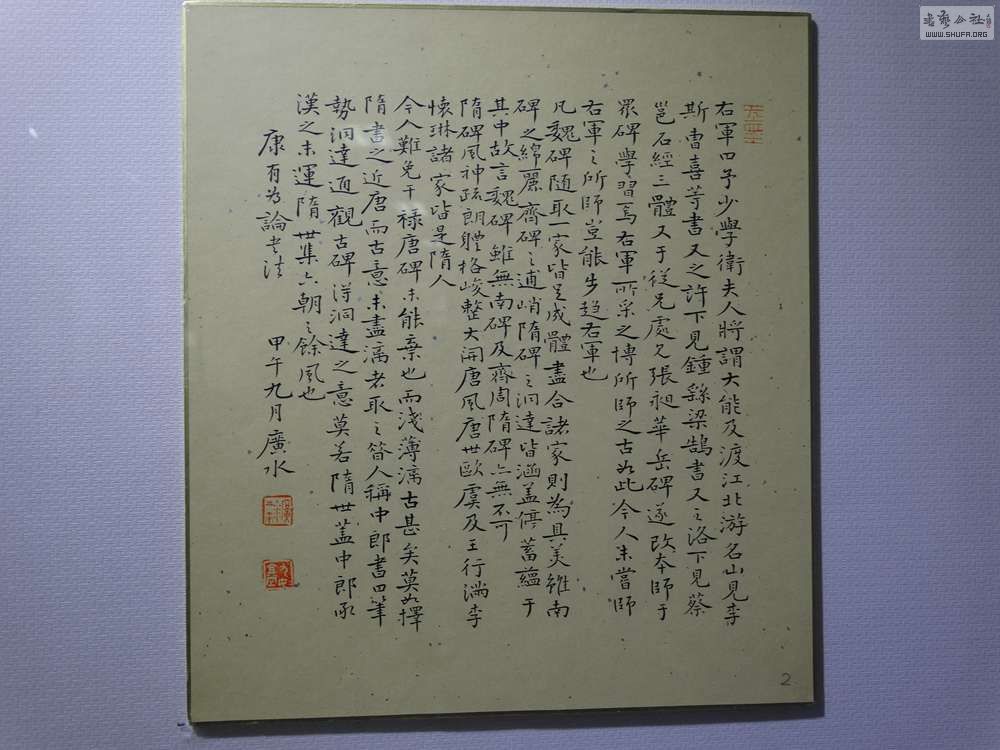 右軍曰予少學衛夫人將謂大能及渡江北游名山見李
斯曹喜等書又之許下見鍾繇梁鵠書又之洛下見蔡
邕石經三體又于從兄處見張昶華岳碑遂改本師于
眾碑學習焉右軍所采之博所師之古如此今人未嘗師
右軍之所師豈能步趋右軍也
凡魏碑随取一家皆足成體盡合諸家則為具美雖南
碑之綿麗齊碑之逋峭隋碑之洞達皆涵盖停蓄蘊于
其中故言魏碑雖無南碑及齊周隋碑亦無不可
隋碑風神疏朗體格峻整大開唐風唐世歐虞及王行滿李
懷琳諸家皆是隋人
今人難免干禄唐碑未能棄也而淺薄漓古甚矣莫如擇
隋書之近唐而古意未盡漓者取之昔人稱中郎書曰筆
勢洞達通觀古碑得洞達之意莫若隋世蓋中郎承
漢之末運隋世集六朝之餘風也
康有為論書法 甲午九月廣水
2
書藝公社
WWW.SHUFA.ORG